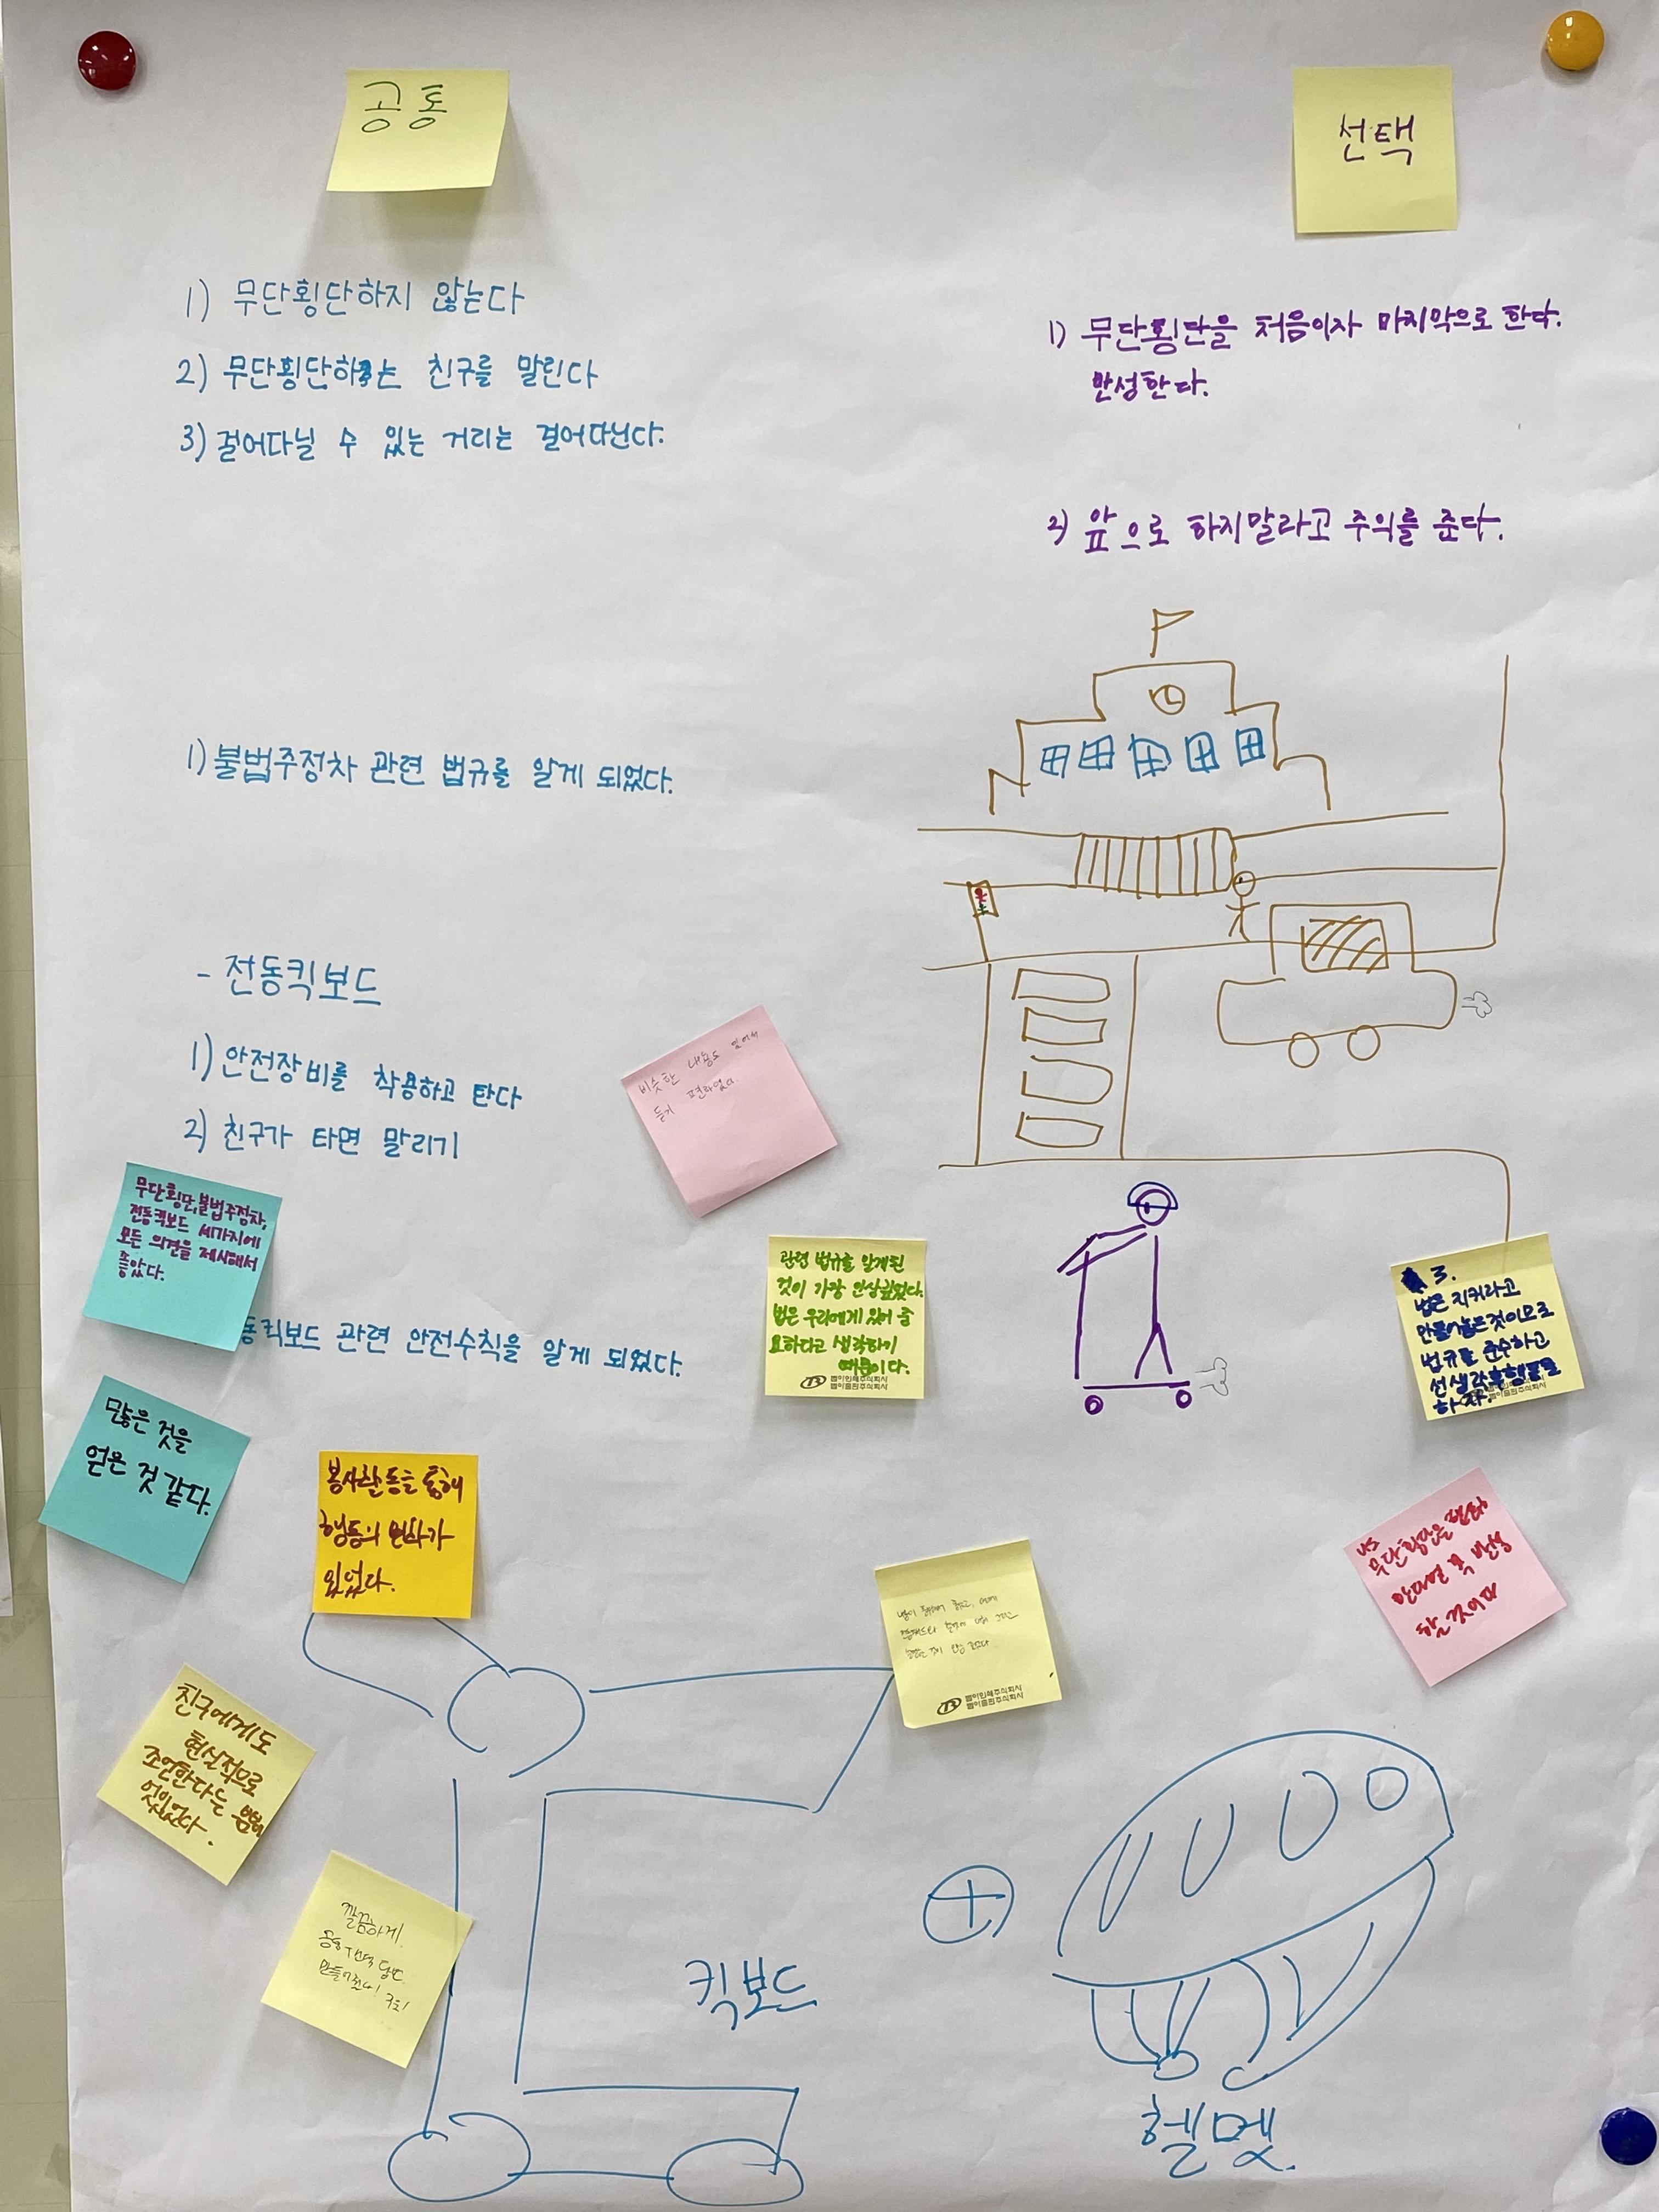 공통
1) 무단횡단하지 않는다
2) 무단횡단하는 친구를 말린다
3) 걸어다닐 수 있는 거리는 걸어다닌다.
1) 불법주정차 관련 법규를 알게 되었다.
- 전동킥보드
1) 안전장비를 착용하고 탄다
2) 친구가 타면 말리기
동킥보드 관련 안전수칙을 알게 되었다.
선택
1) 무단횡단을 처음이자 마지막으로 한다.
반성한다.
2) 앞으로 하지말라고 주의를 준다.
비슷한 내용도 있어서
듣기 편하였다.
무단횡단,불법주정차,
전동킥보드 세가지에
모든 의견을 제시해서
좋았다.
관련 법규를 알게된
것이 가장 인상깊었다.
법은 우리에게 있어 중
요하다고 생각하기
때문이다.
범아인쇄주식회사
범아출판주식회사
3.
법은 지키라고
만들어놓은것이므로
법규를 준수하고
선생각후행동을
하자.
많은 것을
얻은 것 같다.
봉사활동을 통해
행동의 변화가
있었다.
무단횡단을
반성
할 것이다
범아인쇄주식회사
범아출판주식회사
친구에게도
현실적으로
조언한다는
멋있었다.
깔끔하게
킥보드
헬멧.